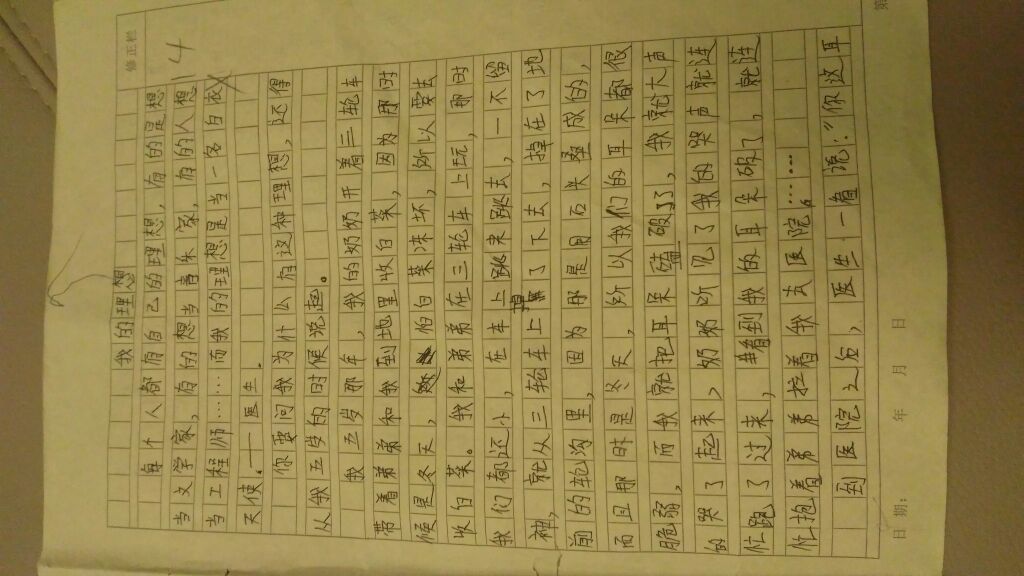 修正栏
14
我的理想
每个人都有自己的理想，有的是想
当文学家，有的想当音乐家，有的人想
当工程师……而我的理想是当一名白衣
天使.——医生.
你要问我为什么有这种理想，还得
从我五岁的时候说起。
我五岁那年，我的奶奶开着三轮车
带着弟弟和我到地里收白菜，因为那时
候是冬天，怕白菜冻坏，所以要去
收白菜。我和弟弟在三轮车上玩，那时
我们都还小，在车上跳来跳去，一不留
神，就从三轮车上了下去，掉在了地
前的轮沟里，因为那是用石头垒成的，
而且那时是冬天，所以我们的耳朵都很
脆弱，而我就把耳朵磕破了，我就大声
的哭了起来，奶奶听见了我的哭声就连
忙跑了过来，看到我的耳朵破了，就连
忙抱着弟弟拉着我去医院。……
到医院之后，医生一看说：“你这耳
日期： 年 月 日
第